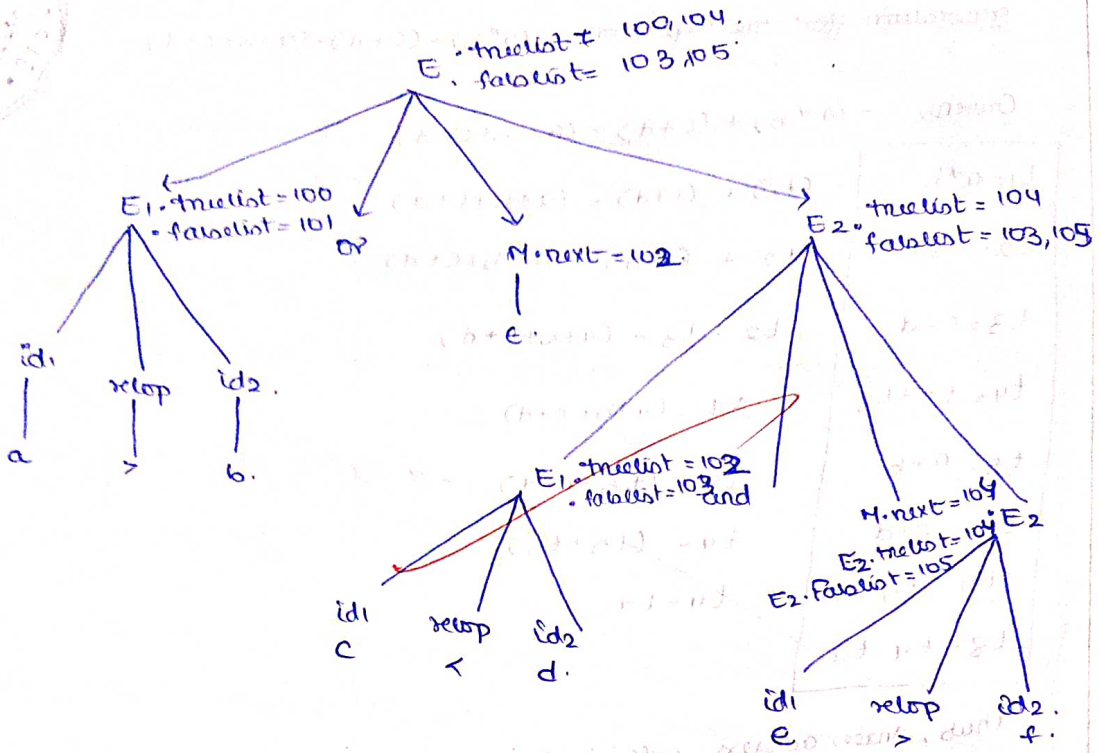 E .truelist = 100,104.
. falselist = 103,105.
E1.truelist = 100
. falselist = 101
or
M.next = 102.
ϵ.
E2. truelist = 104
falselist = 103,105
id1
relop
id2.
a
>
b.
E1.truelist = 102
. falselist = 103
and
M.next = 104
E2
E2.truelist = 104
E2.Falselist = 105
id1
relop
id2
c
<
d.
id1
relop
id2.
e
>
f.